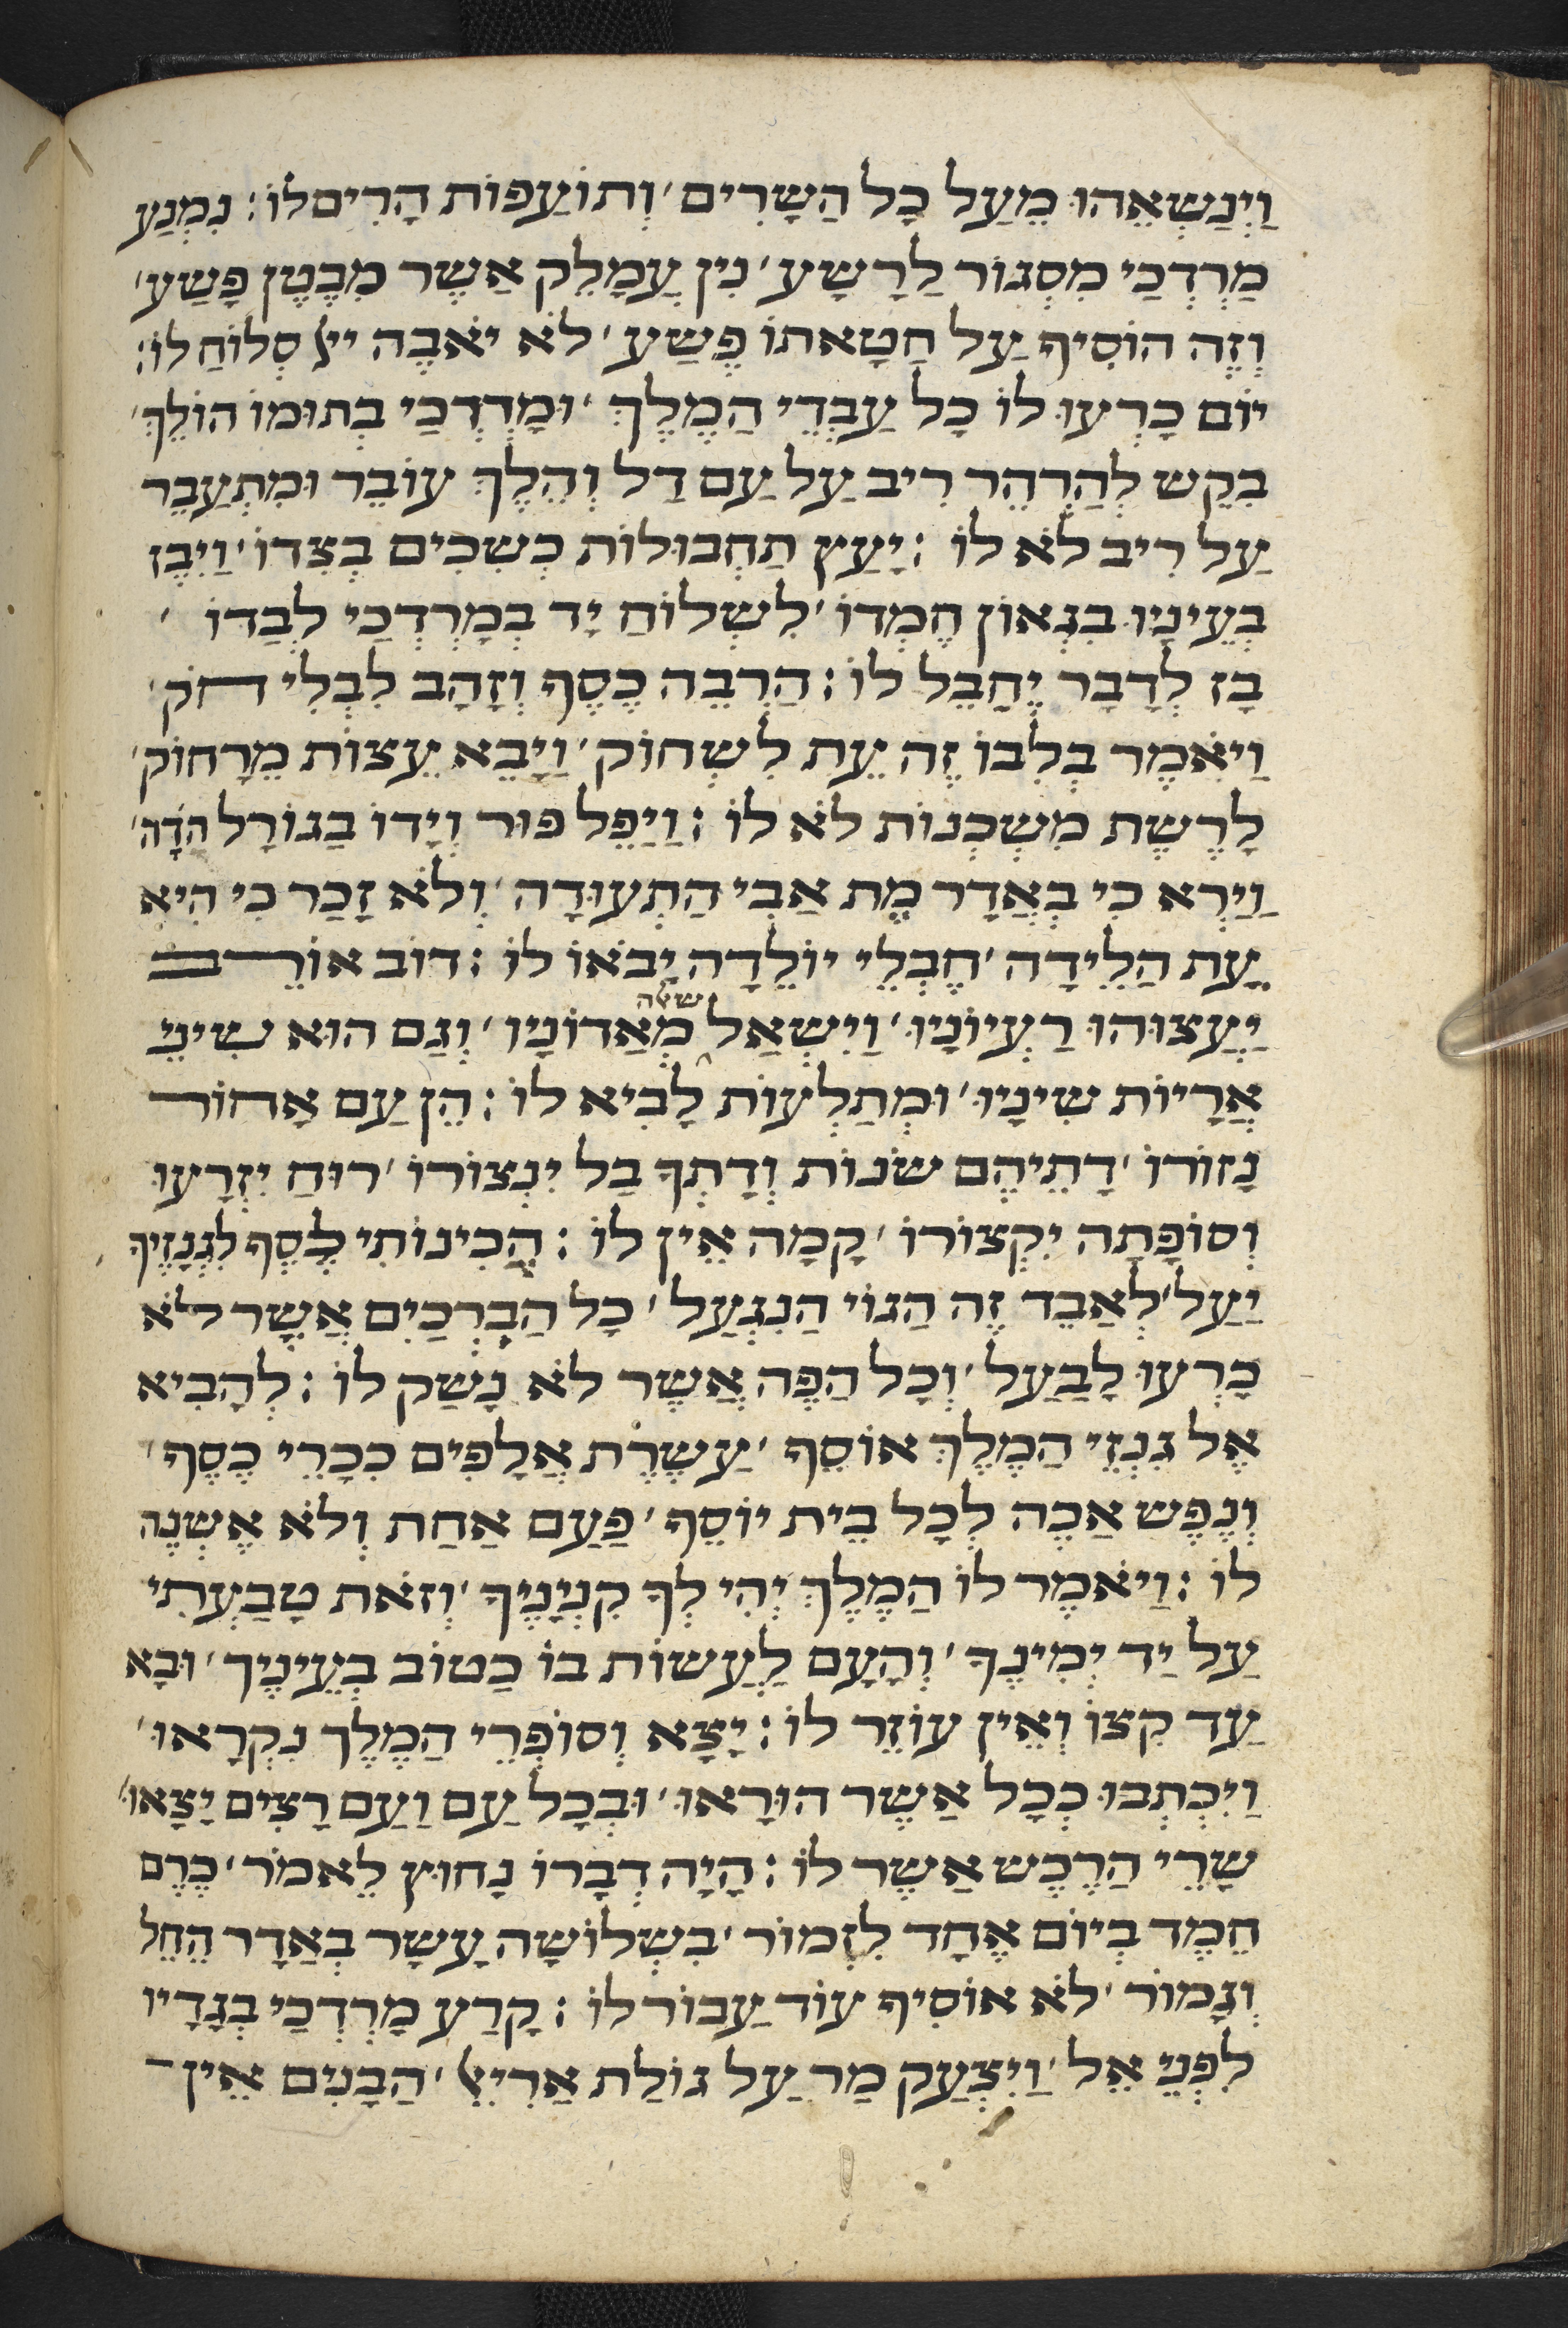 וַיְנַשְׂאֵהוּ מֵעַל כָּל הַשָׂרִים׳ וְתוֹעֲפוֹת הָרִים לוֹ׃ נִמְנַע
מַרְדְכַי מִסְגוֹר לַרָשָׁע׳ נִין עֲמָלֵק אֲשֶׁר מִבֶּטֶן פָּשַׁע׳
וְזֶה הוֹסִיף עַל חַטָאתוֹ פֶּשַׁע׳ לֹא יֹאבֶה ייֹ סְלוֹחַ לוֹ׃
יוֹם כָּרְעוּ לוֹ כָּל עַבְדֵי הַמֶלֶךְ׳ וּמָרְדְכַי בְּתוּמוֹ הוֹלֵךְ׳
בִּקֵשׁ לְהַרְהֵר רִיב עַל עַם דַל וְהֵלֶךְ עוֹבֵר וּמִתְעַבֵּר
עַל רִיב לֹא לוֹ׃ יָעַץ תַּחְבּוּלוֹת כְּשִׂכִּים בְּצִדוֹ׳ וַיִבֶז
בְּעֵינָיו בִּגְאוֹן חֶמְדוֹ׳ לִשְׁלוֹחַ יָד בְּמָרְדְכַי לְבַדוֹ׳
בָּז לְדָבָר יֵחָבֵל לוֹ׃ הִרְבָּה כֶּסֶף וְזָהָב לִבְלִי חוֹק׳
וַיֹאמֶר בְּלִבּוֹ זֶה עֵת לִשְׂחוֹק׳ וַיָבֵא עֵצוֹת מֵרָחוֹק׳
לָרֶשֶׁת מִשְׁכְּנוֹת לֹא לוֹ׃ וַיַפֵּל פּוּר וְיָדוֹ בַגוֹרָל הָדָה׳
וַיַרְא כִּי בְאֲדָר מֵת אֲבִי הַתְּעוּדָה׳ וְלֹא זָכַר כִּי הִיא
עֵת הַלֵידָה׳ חֶבְלֵי יוֹלֵדָה יָבֹאוּ לוֹ׃ דוֹב אוֹרֵב
יְעָצוּהוּ רַעְיוֹנָיו׳ וַיִשְׁאַל שאלה מֵאֲדוֹנָיו׳ וְגַם הוּא שִׁינֵי
אֲרָיוֹת שִׁינָיו׳ וּמְתַלְעוֹת לָבִיא לוֹ׃ הֵן עַם אָחוֹר
נָזוֹרוּ׳ דָתֵיהֶם שֹׁנוֹת וְדָתְךָ בַּל יִנְצוֹרוּ׳ רוּחַ יִזְרָעוּ
וְסוּפָתָה יִקְצוֹרוּ׳ קָמָה אֵין לוֹ׃ הֲכִינוֹתִי כֶּסֶף לִגְנָזֶיךָ
יַעַל׳ לְאַבֵּד זֶה הַגוֹי הַנִגְעַל׳ כָּל הַבִּרְכַּיִם אֲשֶׁר לֹא
כָּרְעוּ לַבַּעַל׳ וְכָל הַפֶּה אֲשֶׁר לֹא נָשַׁק לוֹ׃ לְהָבִיא
אֶל גִנְזֵי הַמֶלֶךְ אוֹסֵף׳ עֲשֶׂרֶת אֲלָפִים כִּכָּרֵי כֶסֶף׳
וְנֶפֶשׁ אַכֶּה לְכָל בֵּית יוֹסֵף׳ פַּעַם אַחַת וְלֹא אֶשְׁנֶה
לוֹ׃ וַיֹאמֶר לוֹ הַמֶלֶךְ יְהִי לְךָ קִנְיָנֶיךָ׳ וְזֹאת טַבַּעְתִּי
עַל יַד יְמִינֶךָ׳ וְהָעָם לַעֲשׂוֹת בּוֹ כַּטוֹב בְּעֵינֶיךָ׳ וּבָא
עַד קִצוֹ וְאֵין עוֹזֵר לוֹ׃ יָצָא וְסוֹפְרֵי הַמֶלֶךְ נִקְרָאוּ׳
וַיִכְתְּבוּ כְּכָל אֲשֶׁר הוּרָאוּ׳ וּבְכָל עַם וָעַם רָצִים יָצָאוּ׳
שָׂרֵי הָרֶכֶשׁ אֲשֶׁר לוֹ׃ הָיָה דְבָרוֹ נָחוּץ לֵאמֹר׳ כֶּרֶם
חֶמֶד בְּיוֹם אֶחָד לִזְמוֹר׳ בִּשְׁלוֹשָׁה עָשָׂר בַּאֲדָר הָחֵל
וְגָמוֹר׳ לֹא אוֹסִיף עוֹד עֲבוֹר לוֹ׃ קָרַע מָרְדְכַי בְּגָדָיו
לִפְנֵי אֵל׳ וַיִצְעַק מַר עַל גוֹלַת אֲרִיאֵל׳ הַבָנִים אֵין־